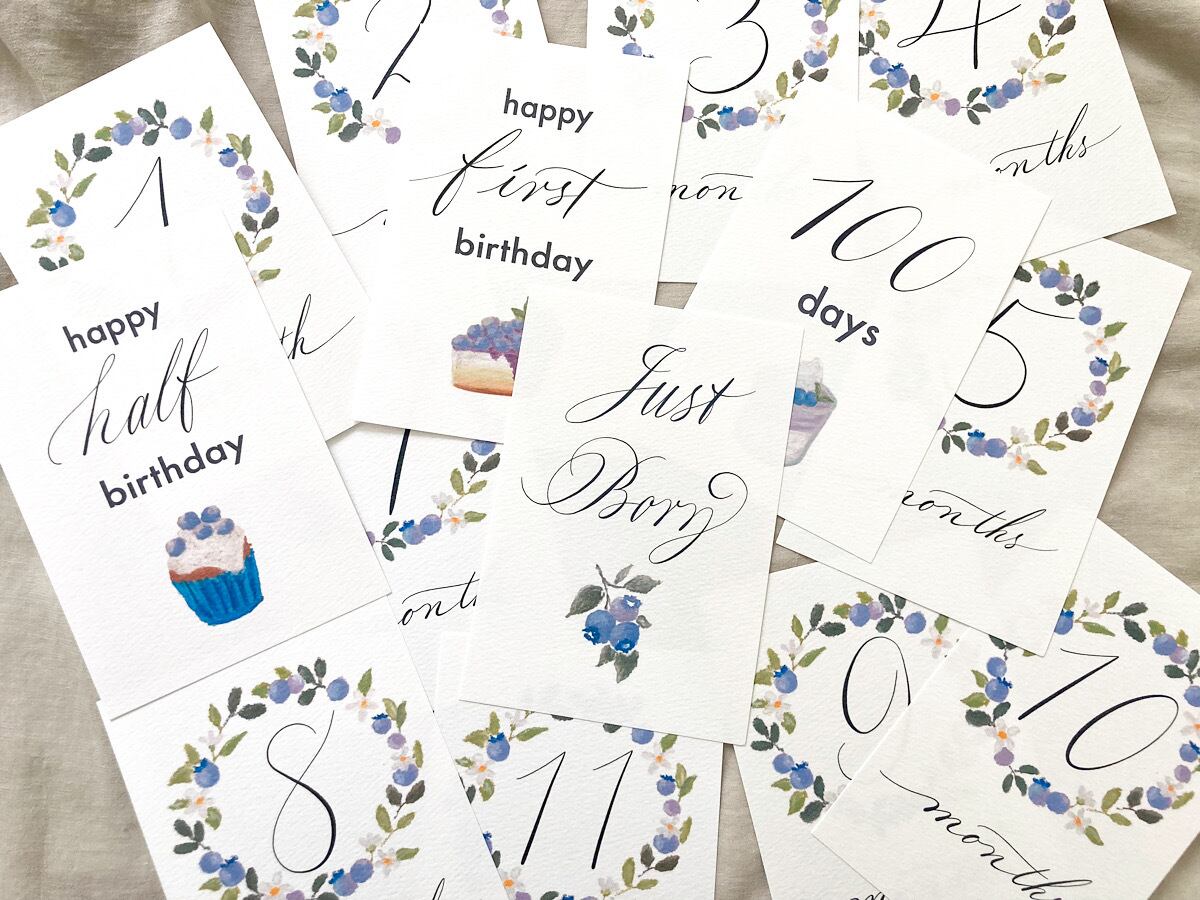 2
3
4
onths
1
th
happy
first
birthday
mon
100
days
5
onths
happy
half
birthday
Just
Born
ont
9
10
months
8
11